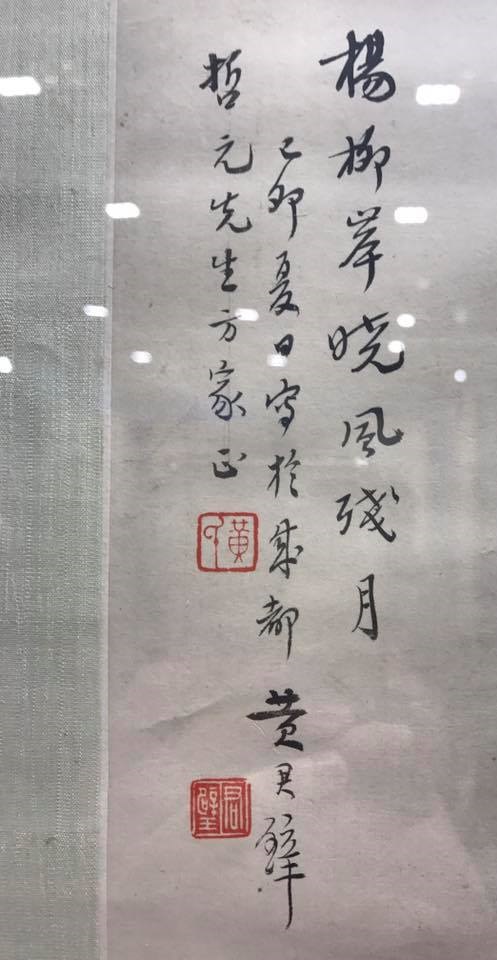 楊柳岸曉風殘月
己卯夏日寫於成都 黃君璧
哲元先生方家正
黃
君璧